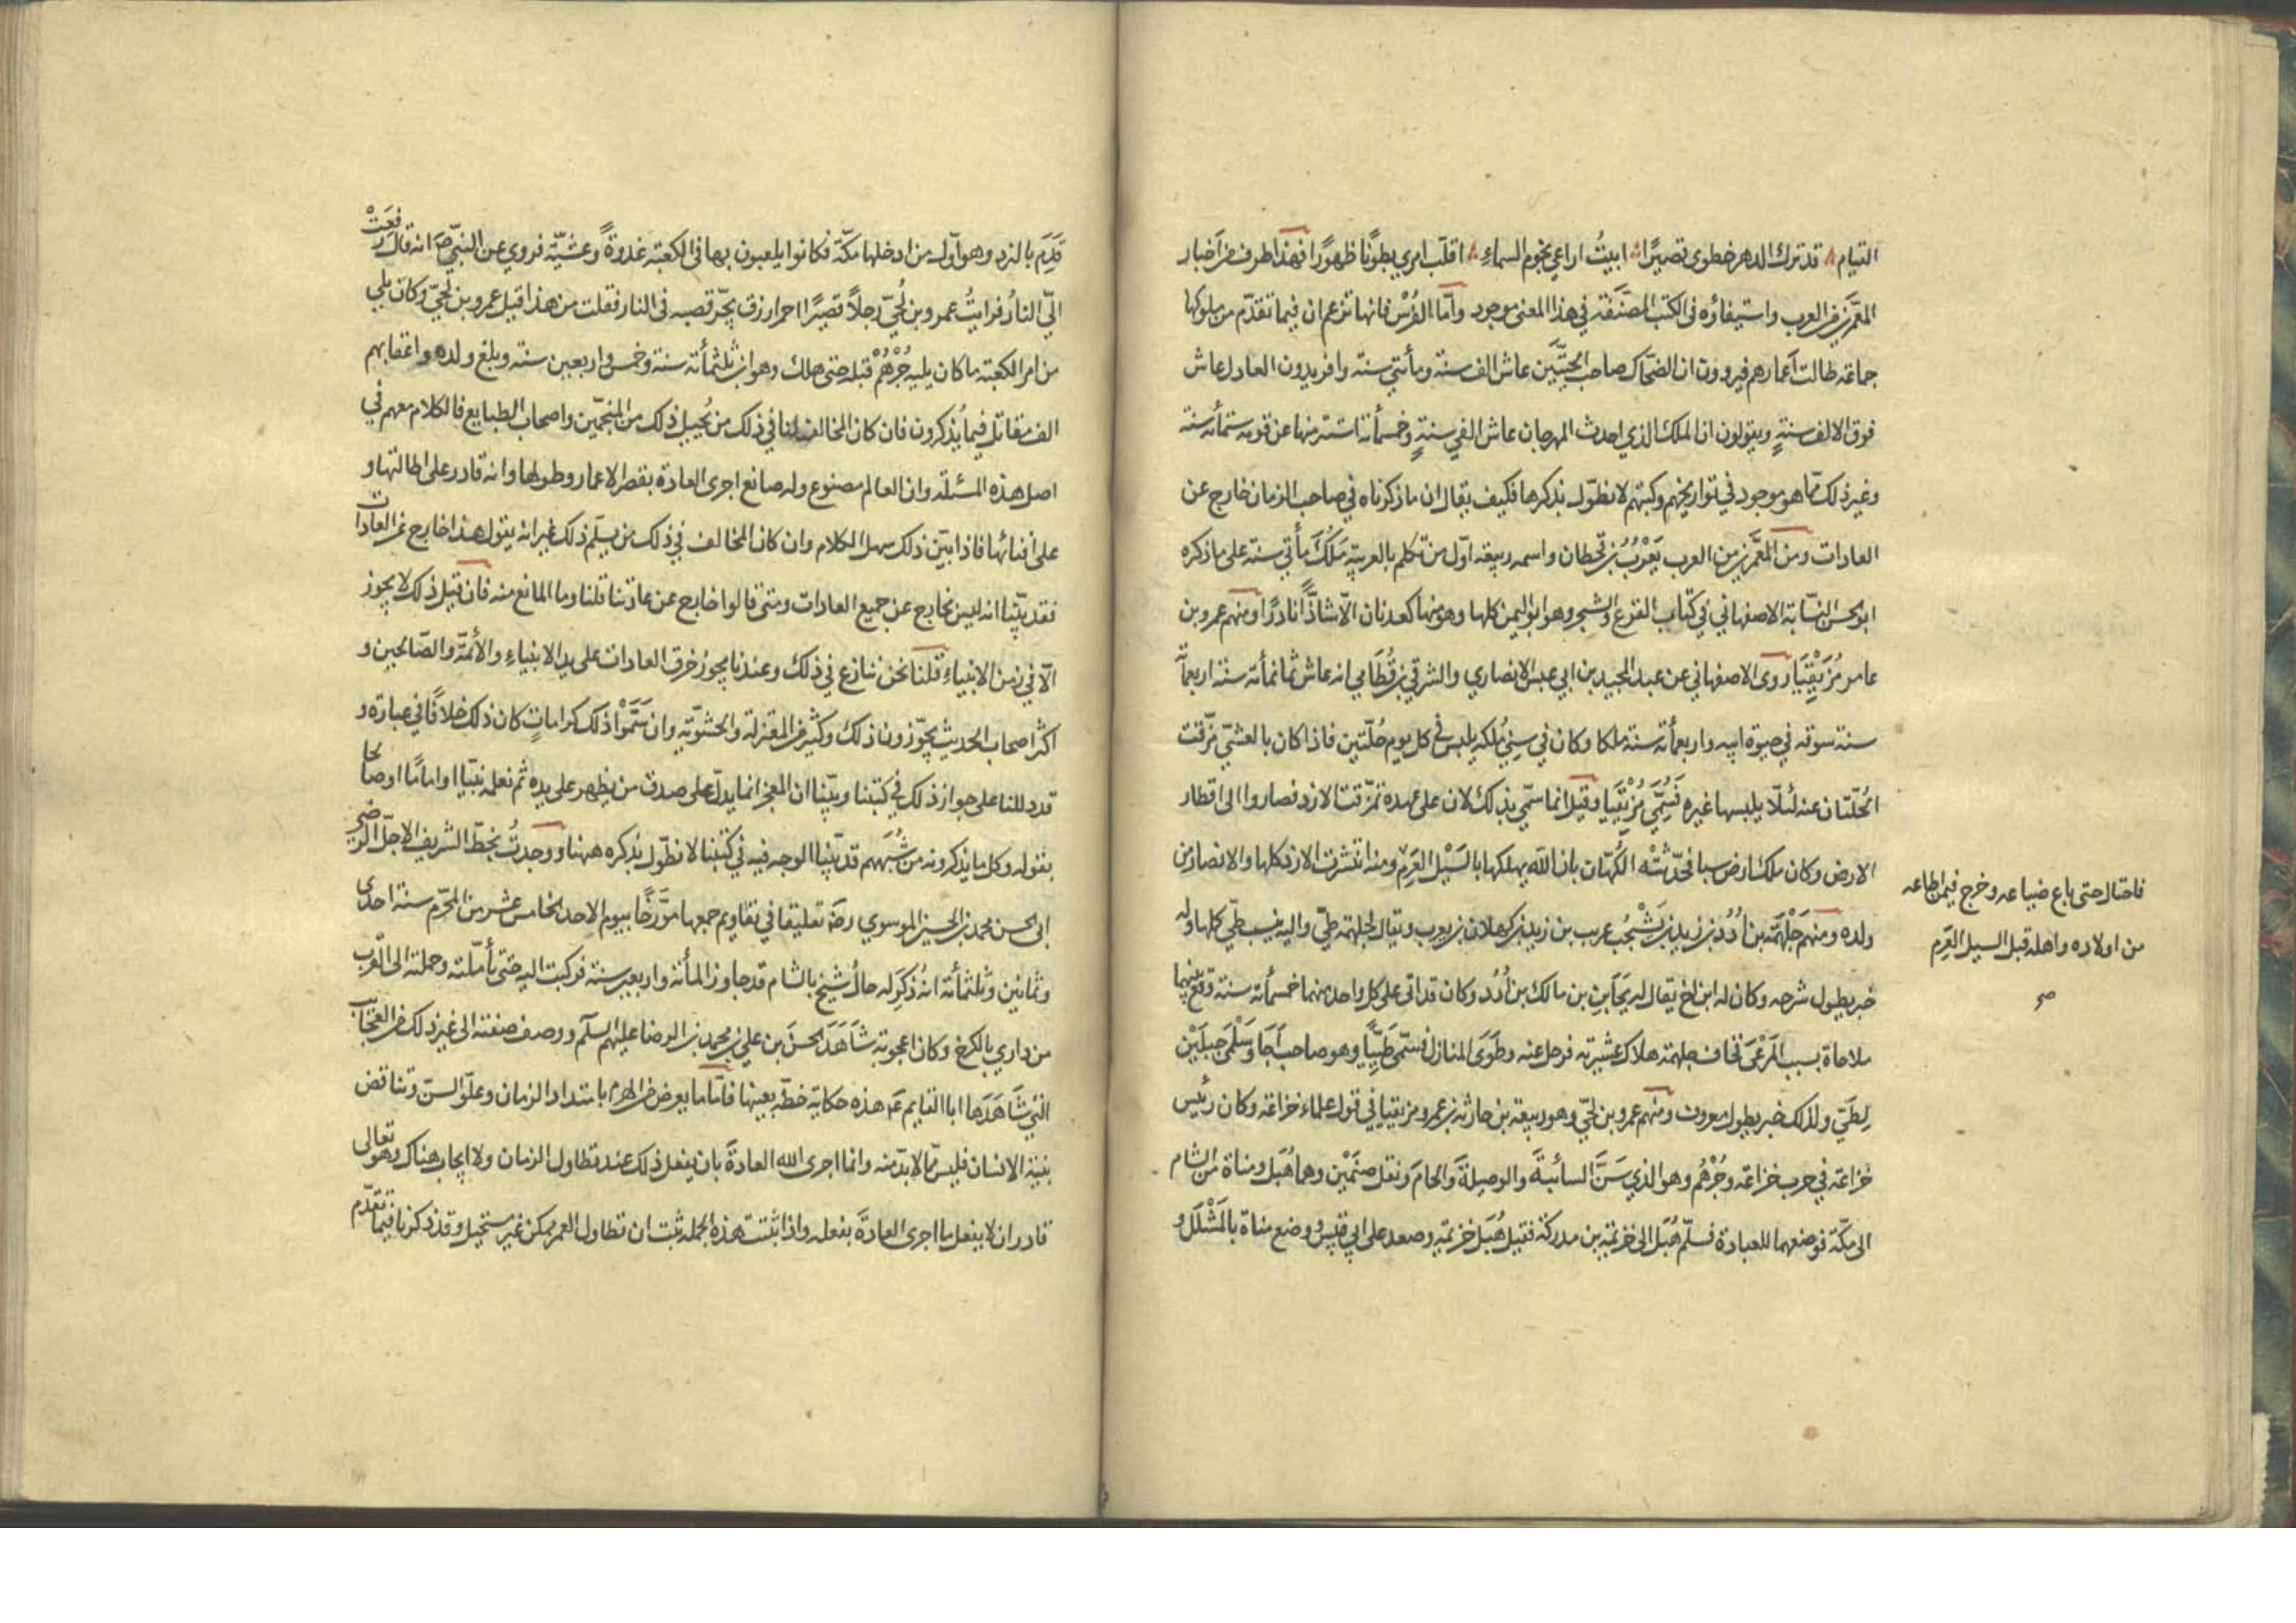 القيام ؞ قد ترك الدهر خطوى قصيرًا ؞ ابيتُ اراعي نجوم السماءِ ؞ اقلّب امري بطونًا ظهورًا فهذا طرف من اَخبار
المعمّرين من العرب واستيفاؤه فى الكتب المصنّفة في هذا المعنى موجود وامّا الفُرْس فانها تزعم ان فيما تقدّم من ملوكها
جماعة طالت اَعمارهم فيروون ان الضحّاك صاحب الحيّتَين عاش الف سنة ومأتي سنة وافريدون العادل عاش
فوق الالف سنةٍ ويقولون ان الملك الذي احدث المهرجان عاش الفي سنةٍ وخمسمأئة استتر منها عن قومه ستمائه سنة
وغير ذلك ممّا هو موجود في تواريخهم وكتبهم لا نطوّل بذكرها فكيف يقال ان ما ذكرناه في صاحب الزمان خارج عن
العادات ومن المعمَّرين من العرب يَعْرُبُ بن قحطان واسمه ربيعة اوّل من تكلم بالعربيّة مَلَكَ مأتي سنة على ما ذكره
ابو الحسن النسّابة الاصفهاني في كتاب الفرع والشجر وهو ابو اليمن كلها وهو منها كعدنان الّا شاذًّا نادرًا ومنهم عمرو بن
عامر مُزَيْقِيَا روى الاصفهاني عن عبد المجيد بن ابي عبس الانصاري والشرقي بن قُطَامي انه عاش ثمانمأئة سنة اربعمأئة
سنة سوقه في حيوة ابيه واربعمأئة سنة ملكا وكان في سِنِي مُلكه يلبس في كل يوم حُلّتين فاذا كان بالعشيّ مزّقت
الحُلّتان عنه لئلّا يلبسها غيره فَسُمِّيَ مُزَيْقَيا وقيل انما سمّي بذلك لان على عهده تمزّقت الازد فصاروا الى اقطار
الارض وكان ملك ارض سبا فحدّثتْه الكُهّان بان اللّه يهلكها بالسَيْل العَرِم ومنه انتشرت الازد كلها والانصار من
ولده ومنهم جَلْهَمَة بن اُدُد بن زيد بن يَشْجُب عريب بن زيد بن كهلان بن يعرب ويقال لجلهمة طيّ واليه ينسب طيّ كلها وله
خبر يطول شرحه وكان له ابن اخ يقال له يَحَابِر بن مالك بن اُدُد وكان قد اتى على كل واحد منهما خمسمأئة سنة وقع بينهما
ملاحاة بسبب المَرْعى فخاف جلهمة هلاك عشيرته فرحل عنه وطَوَى المنازل فسمّى طَيّيًا وهو صاحب اَجَا وسَلْمَى جبلَيْن
لِطَيّ ولذلك خبر يطول معروف ومنهم عمرو بن لُحَيّ وهو ربيعة بن حارثة بن عمرو مزيقيا في قول علماء خزاعة وكان رئيس
خزاعة في حرب خزاعة وجُرْهُم وهو الذي سَنَّ السائبةَ والوصيلةَ والحامَ ونقل صنَمَيْن وهما هُبَل ومناة من الشام
الى مكّة فوضعهما للعبادة فسلّم هُبَل الى خزيمة بن مدركة فقيل هُبَل خزيمة وصعد على ابي قبيس ووضع مناة بالمُشَلَّل و
فاحتال حتى باع ضياعه وخرج فيمن اطاعه
من اولاده واهله قبل السيل العَرِم
صح
قَدِمَ بالنرد وهو اَوّل من ادخلها مكّة فكانوا يلعبون بها فى الكعبة غدوةً وعشيّة فروي عن النبيّ ص انه قال رفعَتْ
اليّ النارُ فرايتُ عمرو بن لُحيّ رجلًا قصيرًا احمر ازرق يجرّ قصبه فى النار فقلت من هذا قيل عمرو بن لحيّ وكان يلي
من امر الكعبة ما كان يليه جُرْهُمْ قبله حتى هلك وهو ابن ثلثمأئة سنة وخمس واربعين سنة وبلغ ولده واعقابهم
الف مقاتل فيما يُذكرون فان كان المخالف لنا في ذلك من يُحيل ذلك من المنجّمين واصحاب الطبايع فالكلام معهم في
اصل هذه المسئلة وان العالم مصنوع وله صانع اجرى العادة بقصر الاعمار وطولها وانه قادر على اطالتها و
على افنائها فاذا بيّن ذلك سهل الكلام وان كان المخالف في ذلك من يسلّم ذلك غير انه يقول هذا خارج عن العادات
فقد بيّنّا انه ليس بخارج عن جميع العادات ومتى قالوا خارج عن عادتنا قلنا وما المانع منه فان قيل ذلك لا يجوز
الّا في زمن الانبياءِ قلنا نحن ننازع في ذلك وعندنا يجوز خرق العادات على يد الانبياءِ والأئمّة والصّالحين و
اكثر اصحاب الحديث يجوّزون ذلك وكثير من المعتزلة والحشويّة وان سَمَّوْا ذلك كراماتٍ كان ذلك خلافًا في عبارة و
قد دللنا على جواز ذلك في كتبنا وبيّنا ان المعجز انما يدلّ على صدق من يظهر على يده ثم نعلمه نبيّا او امامًا او صالحا
بقوله وكل ما يذكرونه من شُبَههم قد بيّنا الوجه فيه في كتبنا لا نطوّل بذكره ههنا ووجدتُ بخطّ الشريف الاجلّ الرضي
ابى الحسن محمد بن الحسين الموسوي رضه تعليقا في تقاويم جمعها مؤرّخًا بيوم الاحد الخامس عشر من المحرّم سنة احدى
وثمانين وثلثمأئة انه ذُكِرَ له حالُ شيخ بالشام قد جاوز المأئة واربعين سنة فركبت اليه حتى تأمّلته وحملته الى القُرْب
من داري بالكرخ وكان اعجوبة شَاهَدَ الحسنَ بن علي بن محمد بن الرضا عليهم السلَم ووصف صفته الى غير ذلك من العجايب
التي شَاهَدَها ابا القايم عم هذه حكاية خطّه بعينها فامّا ما يعرض من الهرم بامتداد الزمان وعلوّ السنّ وتناقض
بنية الانسان فليس ممّا لا بدّ منه وانما اجرى اللّه العادةَ بان يفعل ذلك عند تطاول الزمان ولا ايجاب هناك وهو تعالى
قادر ان لا يفعل ما اجرى العادَةَ بفعله واذا ثبتت هذه الجملة ثبت ان تطاول العمر ممكن غير مستحيل وقد ذكرنا فيما تقدّم